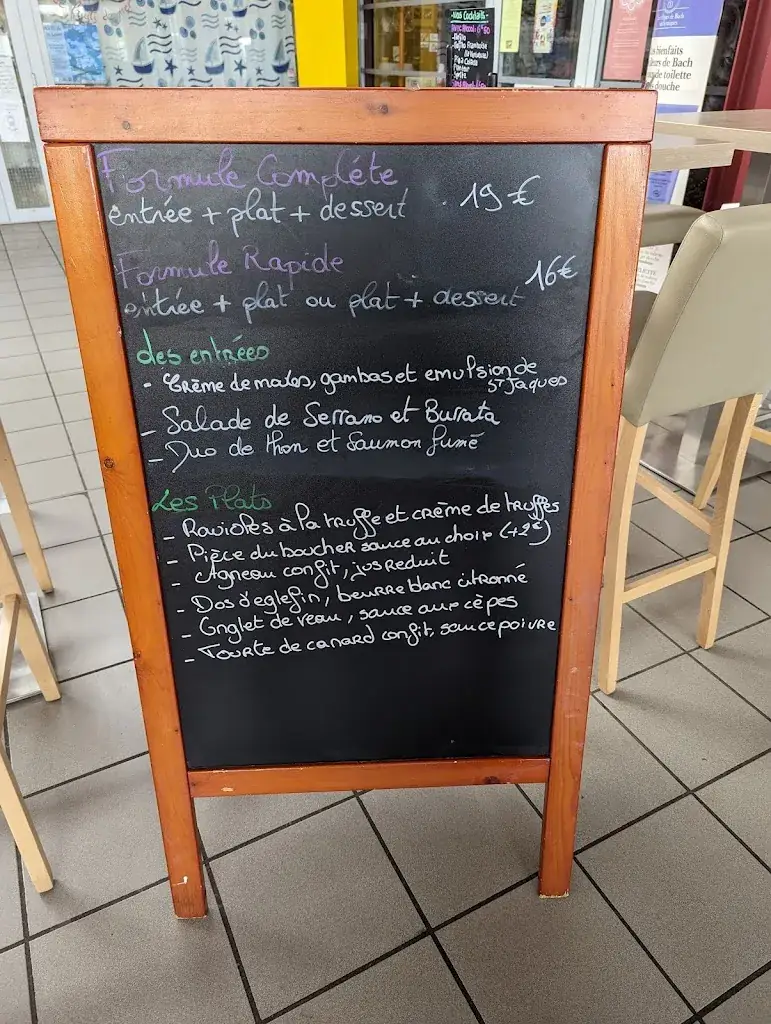 Nos Cocktails
Formule Complète
entrée + plat + dessert 19€
Formule Rapide
16€
entrée + plat ou plat + dessert
des entrées
- Crème de maïs, gambas et emulsion de
St Jaques
- Salade de Serrano et Burrata
- Duo de thon et Saumon fumé
Les Plats
- Ravioles à la truffe et crème de truffes
- Pièce du boucher sauce au choix (+2€)
- Agneau confit, jus reduit
- Dos d'eglefin, beurre blanc citronné
- Onglet de veau, sauce aux cèpes
- Tourte de canard confit, sauce poivre
bienfaits
de Bach
de toilette
douche